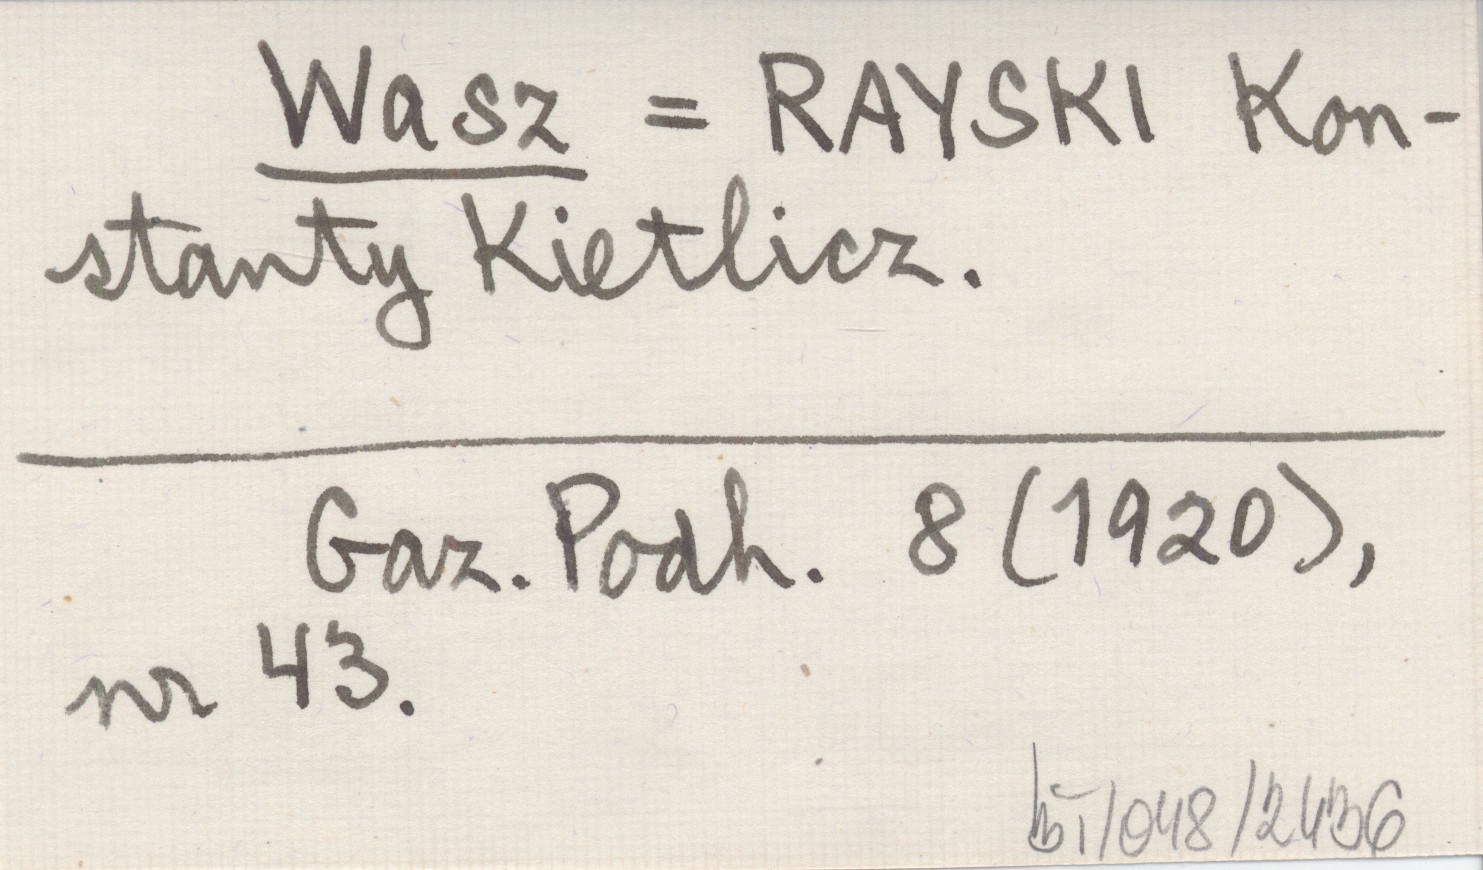 Wasz = RAYSKI Kon-
stanty Kietlicz.
Gaz. Podh. 8 (1920),
nr 43.
/048/2436